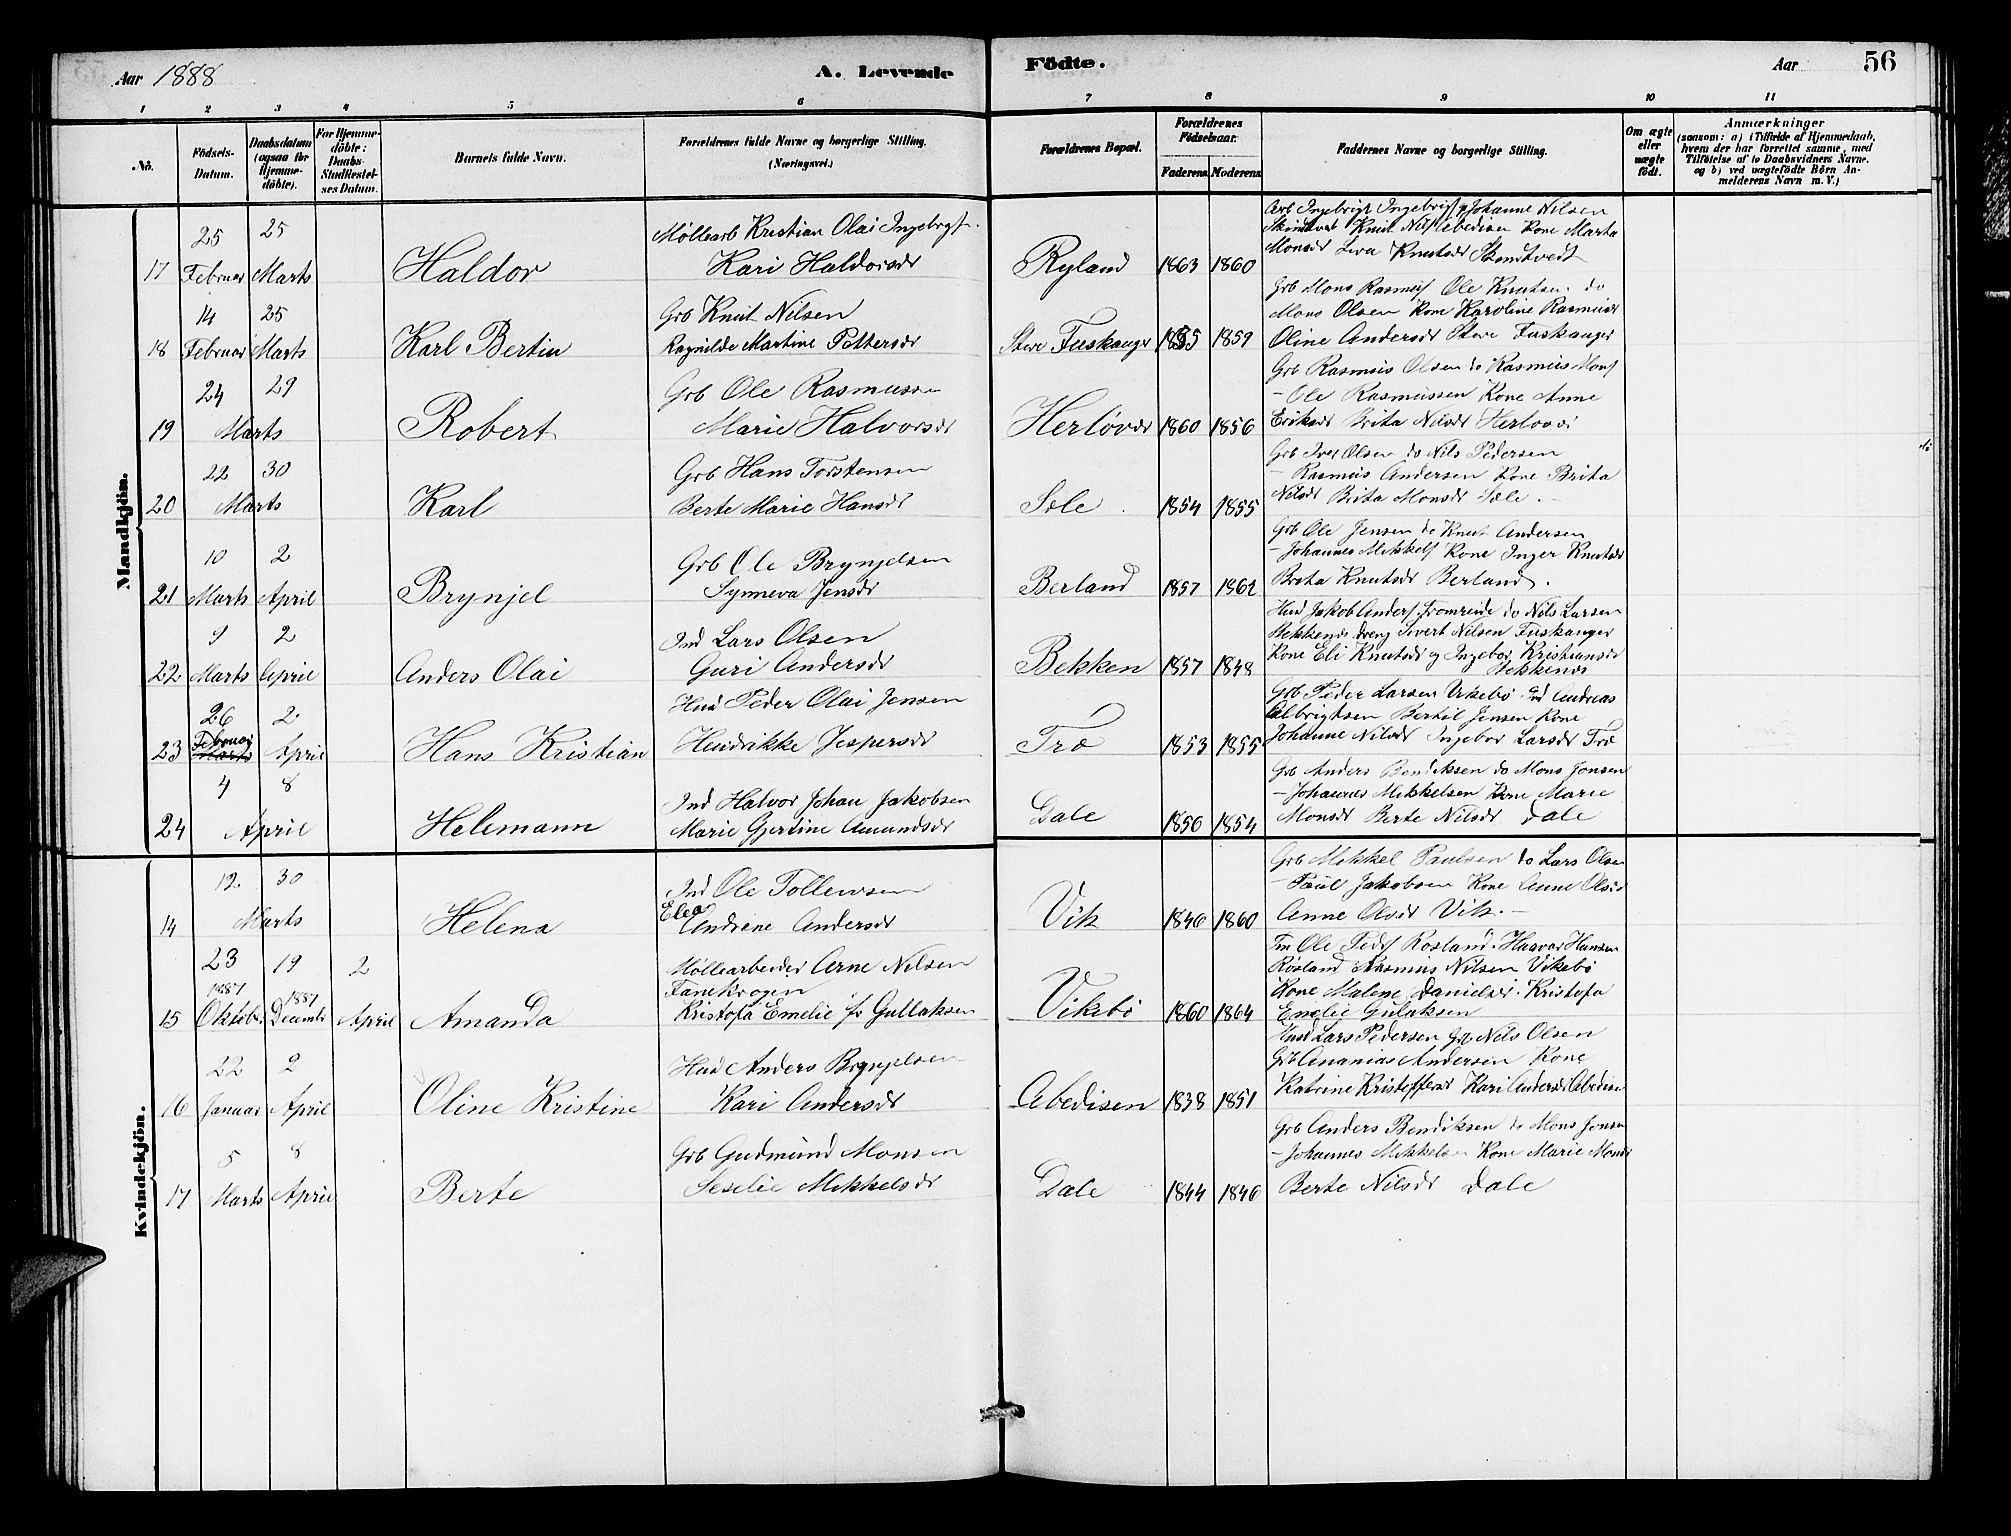 Aar 1888
A. Levende
Födte.
Aar
56
1 2 3 4 5 6 7 8 9 10 11
No.
Födsels-
Datum.
Daabsdatum
(ogsaa for
Hjemme-
döbte).
For Hjemme-
döbte:
Daabs-
Stadfæstel-
ses Datum.
Barnets fulde Navn.
Forældrenes fulde Navne og borgerlige Stilling.
(Næringsvei.)
Forældrenes Bopæl.
Forældrenes
Födselsaar.
Faderens. Moderens.
Faddernes Navne og borgerlige Stilling.
Om ægte
eller
uægte
födt.
Anmærkninger
(saasom: a) i Tilfælde af Hjemmedaab,
hvem der har forrettet samme, med
Tilföielse af to Daabsvidners Navne.
og b) ved uægtefödte Börn An-
melderens Navn m. V.)
Mandkjön.
25 25
17 Februar Marts
Haldor
Møllearb Kristian Olai Ingebrigts.
Kari Haldorsdr
Ryland 1863 1860
Arb Ingebrigt Ingebrigts Johanne Nilsen
Knut Nils Kone Marta
Monsdr Knutsdr
14 25
18 Februar Marts
Karl Bertin
Grb Knut Nilsen
Ragnilde Martine Pettersdr
Store Fuskanger 1855 1859
Grb Mons Rasmus Ole Knutsen do
Mons Olsen Kone Karoline Rasmusdr
Oline Andersdr Store Fuskanger
24 29
19 Marts
Robert
Grb Ole Rasmussen
Marie Halvorsdr
Herlövær 1860 1856
Grb Rasmus Olsen do Rasmus Mons
- Ole Rasmussen Kone Anne
Eriksdr Brita Nilsdr
22 30
20 Marts
Karl
Grb Hans Torstensen
Berte Marie Hansdr
Sæle 1854 1855
Grb Iver Olsen do Nils Pedersen
- Rasmus Andersen Kone Brita
Nilsdr Brita Monsdr Sæle. -
10 2
21 Marts April
Brynjel
Grb Ole Brynjelsen
Synneva Jensdr
Berland 1857 1862
Grb Ole Jensen do Knut Andersen
- Johannes Mikkels Kone Inger Knutsdr
Brita Knutsdr Berland.
9 2
22 Marts April
Anders Olai
Ind Lars Olsen
Guri Andersdr
Bekken 1857 1848
Hud Jakob Anders do Nils Larsen
dreng Sivert Nilsen Fuskanger
Kone Eli Knutsdr og Ingebor Kristiansdr
26 2
Februar
23 Marts April
Hans Kristian
Hud Peder Olai Jensen
Hendrikke Jespersdr
Træ 1853 1855
Grb Peder Larsen Vikebø Ind Andreas
Albrigtsen Bertil Jensen Kone
Johanne Nilsdr Ingebor Larsdr Træ
4 8
24 April
Helemann
Ind Halvor Johan Jakobsen
Marie Gjertine Amundsdr
Dale 1856 1854
Grb Anders Bendiksen do Mons Jonsen
- Johannes Mikkelsen Kone Marie
Monsdr Berte Nilsdr Dale
Kvindekjön.
12 30
14 Marts
Helena
Ind Ole Tollevsen
Elea
Andrine Andersdr
Vik 1846 1860
Grb Mikkel Paulsen do Lars Olsen
- Paul Jakobsen Kone Anne Olsdr
Anne Olsdr Vik. -
23 19 2
1887 1887
15 Oktober December April
Amanda
Møllearbeider Arne Nilsen
Fanekrogen
Kristofa Emelie f. Gullaksen
Vikebö 1860 1864
Ole Peders Rosland. Haavar Hansen
Røsland Rasmus Nilsen Vikebö
Kone Malene Danielsdr. Kristofa
Emelie Gulaksen
22 2
16 Januar April
Oline Kristine
Hud Anders Brynjelsen
Kari Andersdr
Abedisen 1838 1851
Hud Lars Pedersen Grb Nils Olsen
Grb Ananias Andersen Kone
Katrine Kristoffersdr Kari Andersdr Abedisen
5 8
17 Marts April
Berte
Grb Gudmund Monsen
Seselie Mikkelsdr
Dale 1844 1846
Grb Anders Bendiksen do Mons Jonsen
- Johannes Mikkelsen Kone Marie Monsdr
Berte Nilsdr Dale